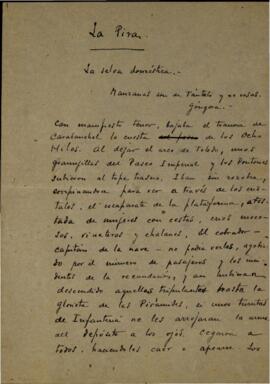 La Pira.
La selva doméstica.-
Manzanas son de Tántalo y no rosas.
Góngora.
Con manifiesto temor, bajaba el tranvía de
Carabanchel la cuesta de los Ocho
Hilos. Al dejar el arco de Toledo, unos
granujillas del Paseo Imperial y los Pontones
subieron al tope trasero. Iban sin
para ver a través de los cris-
tales, el escaparate de la plataforma, ates-
tada de mujeres con cestas, unos
y chalanes. El cobrador-
capitán de la nave - no podía verlos,
por el número de pasajeros y los
de la recaudación, y así hubieran
descendido aquellos tripulantes hasta la
glorieta de las Pirámides, si unos turutas
de Infantería no les arrojaran la arena
del depósito a los ojos. Cegaron a
todos, haciéndoles caer o apearse. Los